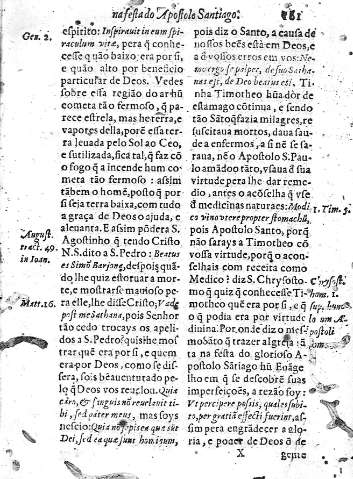 na festa do Apostolo Santiago.
espirito: Inspirauit in eum spi-
raculum vitæ, pera q̃ conhe-
cesse q̃ quão baixo era por si,
e quão alto por beneficio
particular de Deos. Vedes
sobre essa região do ar hũ
cometa tão fermoso, q̃ pa-
rece estrela, mas he terra, e
vapores della, porẽ essa ter-
ra leuada pelo Sol ao Ceo,
e sutilizada, fica tal, q̃ faz cõ
o fogo q̃ a incende hum co-
meta tão fermoso: assim
tãbem o homẽ, posto q̃ por
si seja terra baixa, com tudo
a graça de Deos o ajuda, e
aleuanta. E assim põdera S.
Agostinho q̃ tendo Cristo
N. S. dito a S. Pedro: Beatus
es Simõ Barjona; despois quã-
do lhe quiz estoruar a mor-
te, e mostrarse mauioso pe-
ra elle, lhe disse Cristo; Vade
post me Sathana, pois Senhor
tão cedo trocays os apeli-
dos a S. Pedro? quis lhe mos-
trar quẽ era por si, e quem
era por Deos, como se dis-
sera, sois beauenturado pelo
q̃ Deos vos reuelou. Quia
caro, & sanguis nõ reuelauit ti-
bi, sed pater meus, mas soys
nescio: Quia nõ sapis ea quæ sũt
Dei, sed ea quæ sunt hominum,
Gen. 2.
August.
tract. 49.
in Ioan.
Matt. 16.
pois diz o Santo, a causa de
nossos beẽs està em Deos, e
a dos vossos erros em vos:
de Deo beatus eti. Ti-
nha Timotheo hũa dòr de
estamago côtinua, e sendo
tão Sãto q̃ fazia milagres, re
suscitaua mortos, daua sau-
de a enfermos, a si nẽ se sa-
raua, nẽo Apostolo S. Pau-
lo amãdoo tãto, vsaua d̃ sua
virtude pera lhe dar reme-
dio, antes o acõselha q̃ vse
d̃ medicinas naturaes: Modi-
co vino vtere propter stomachũ,
pois Apostolo Santo, porq̃
não sarays a Timotheo cõ
vossa virtude, porq̃ o acon-
selhais com receita como
Medico? diz S. Chrysosto-
mo q̃ quiz q̃ conhecesse Ti-
motheo quẽ era por si, e q̃
q̃ podia era por virtude
diuina. Por onde diz o
mobào q̃ trazer a Igreja: ã
ta na festa do glorioso A-
postolo Sãtiago hũ Euãge-
lho em q̃ se descobre suas
imperfeições, a razão foy:
Vt percipere possis, quales subi-
to, per gratiã effecti fuerint, as-
sim pera engrãdecer a glo-
ria, e poder de Deos d̃ de
1. Tim. 5.
Chrysost.
hom. 1.
X
gente